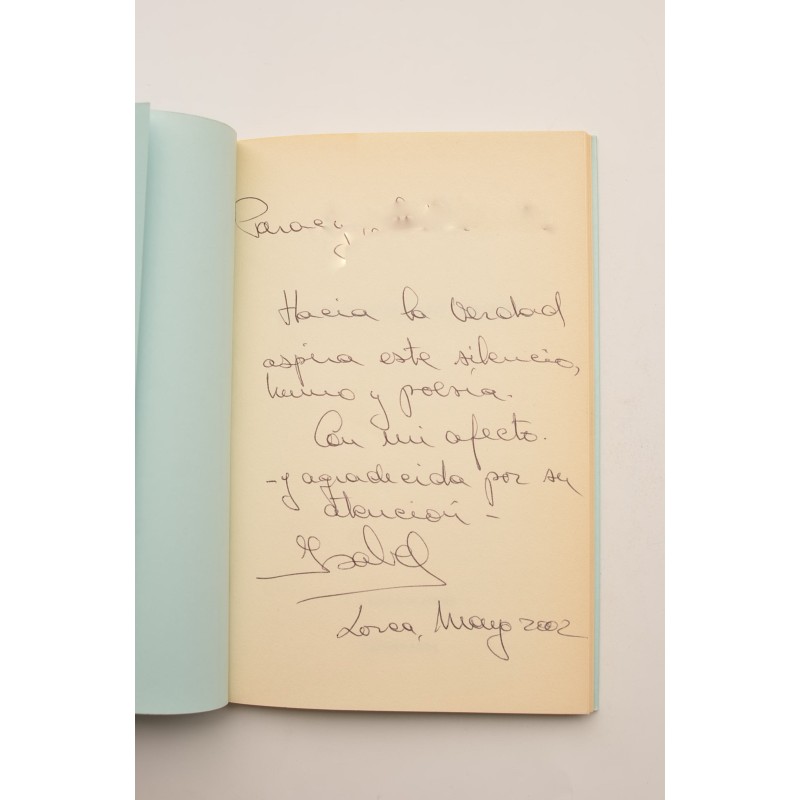 Para
Hacia la Verdad
aspira este silencio,
humo y poesía.
Con mi afecto.
- y agradecida por su
atención -
Isabel
Lorca, Mayo 2002